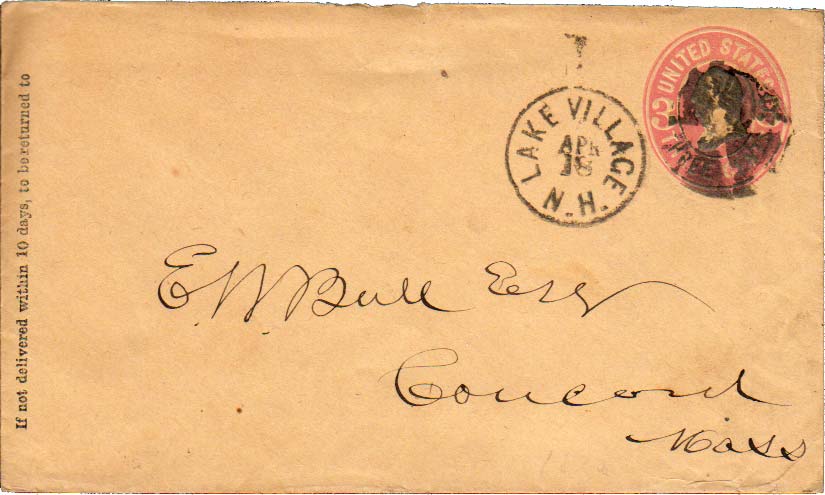 If not delivered within 10 days, to be returned to
LAKE VILLAGE
APR
18
N.H.
UNITED STATES
3
E W Bull Esq
Concord
Mass